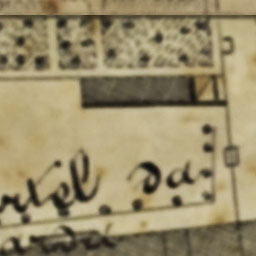 rtel da
arda